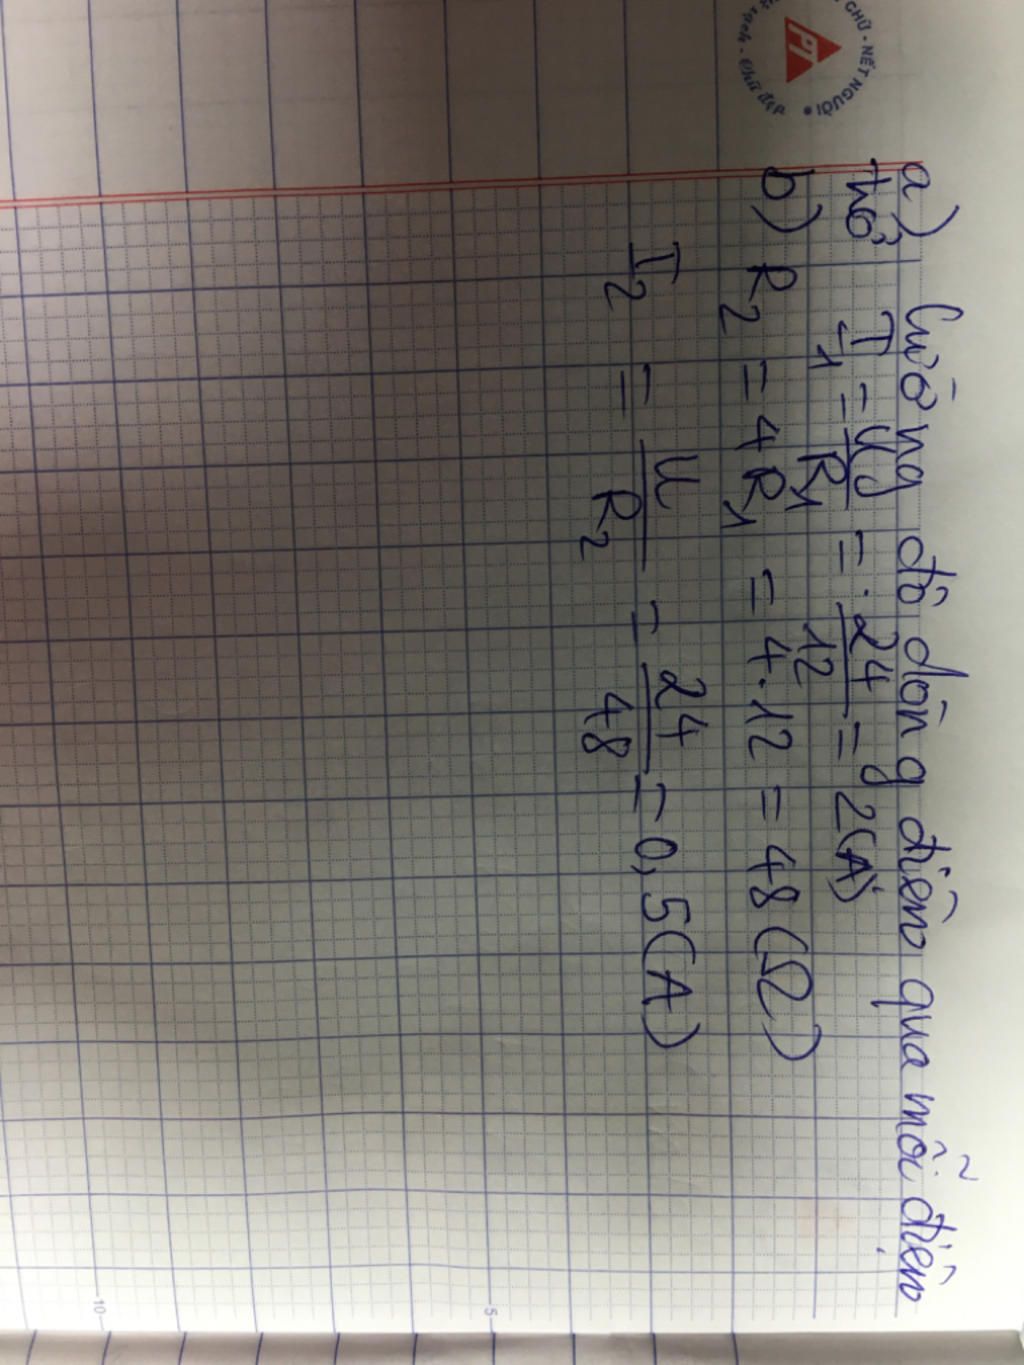 CHỮ - NẾT NGƯỜI
Chữ đẹp
a) Cường độ dòng điện qua mỗi điện
trở I₁ = U/R₁ = 24/12 = 2(A)
b) R₂ = 4R₁ = 4.12 = 48 (Ω)
I₂ = U/R₂ = 24/48 = 0,5(A)
5
10